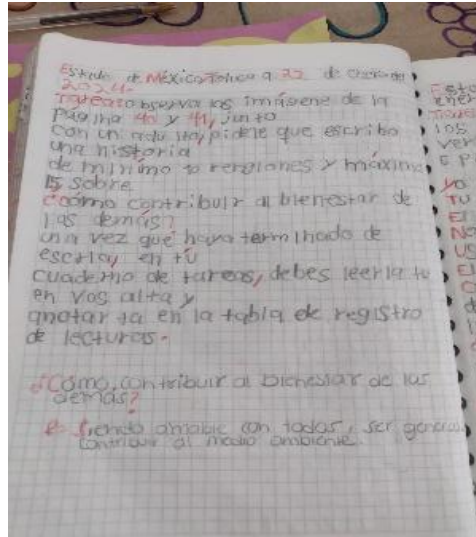 Estado de México Toluca a 22 de
2024.
Tarea: observa las imágene de la
página 40 y 41, junto
con un adulto, pidele que escriba
una historia
de minimo 10 renglones y maximo
15 sobre
¿cómo contribuir al bienestar de
las demás?
una vez que haya terminado de
en tú
cuaderno de tareas, debes leerla tu
en vos alta y
anotar la en la tabla de registro
de lecturas.
¿Cómo contribuir al bienestar de las
demás?
Siendo amable con todos, ser
contribuir al medio ambiente.
yo
TU
EL